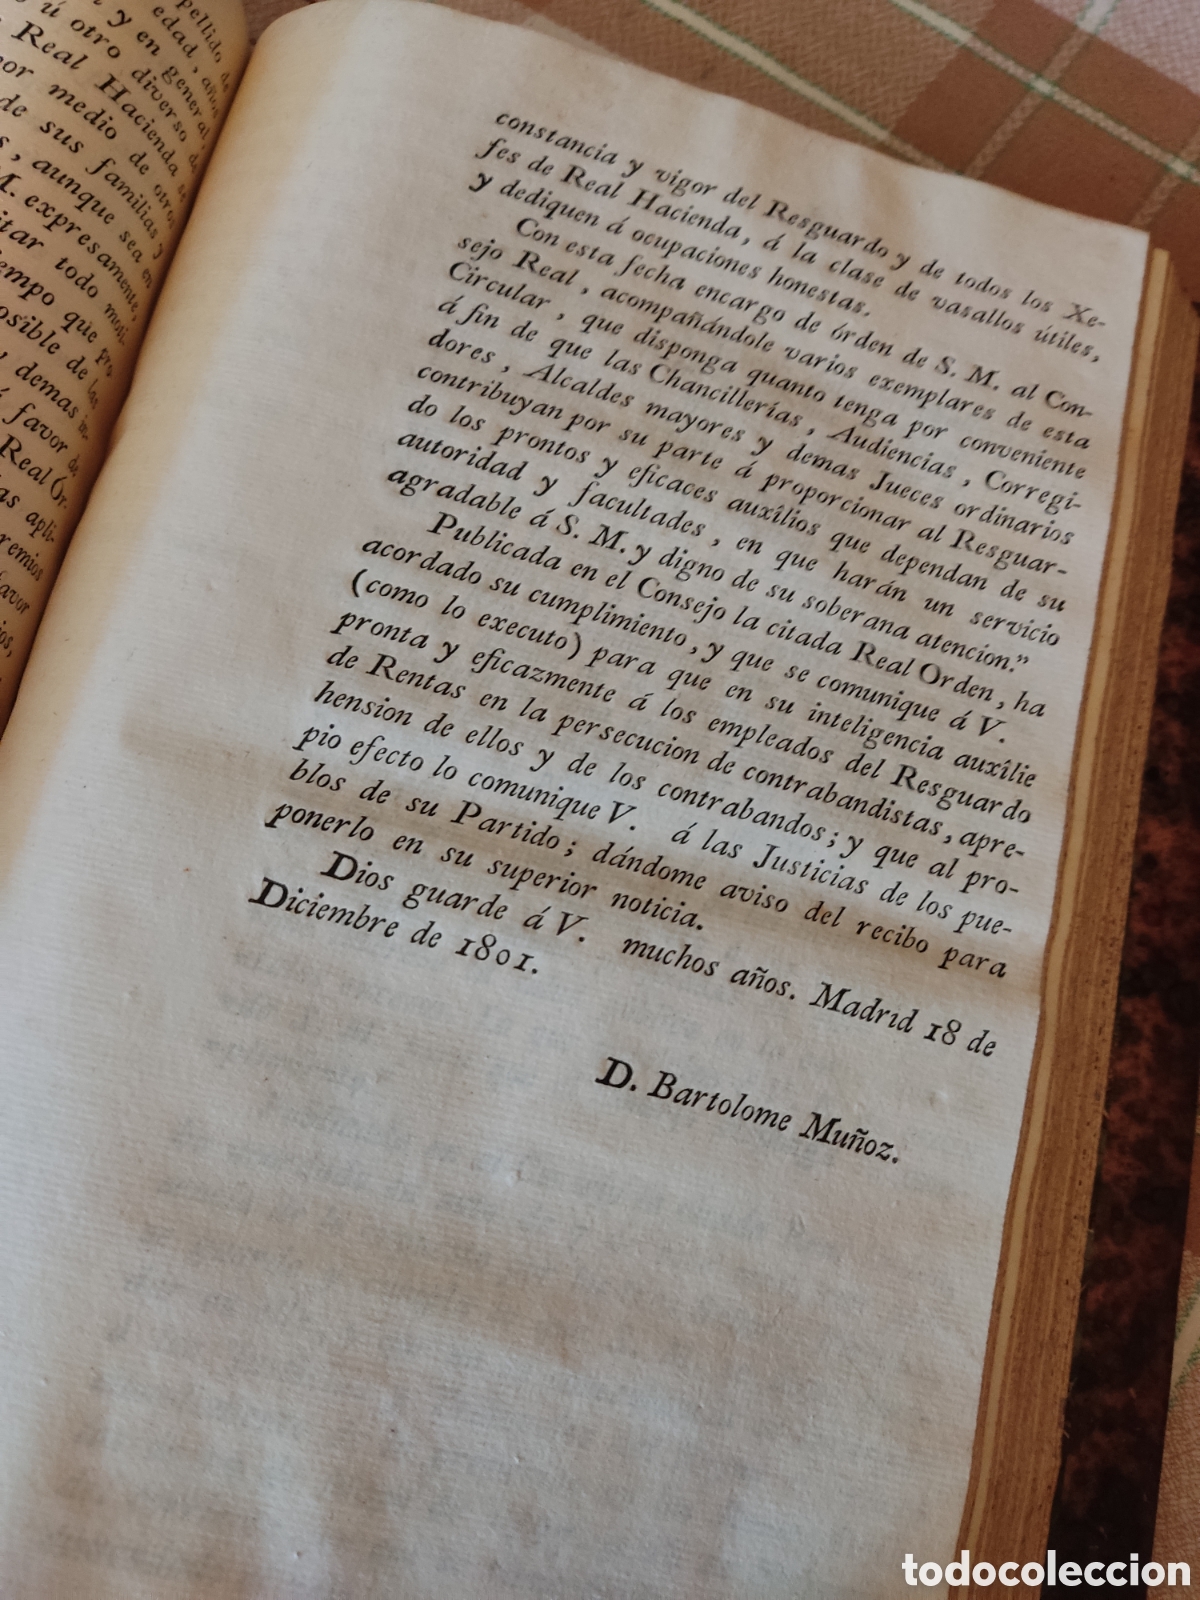 pellido de
edad, años
y en general,
ú otro diverso
Real Hacienda de
por medio de otros
de sus familias y
, aunque sea en
M. expresamente,
itar todo moti-
empo que pro
osible de las
, demas in-
á favor de
Real Ór-
as apli-
remios
avor
ios,
constancia y vigor del Resguardo y de todos los Xe-
fes de Real Hacienda, á la clase de vasallos útiles,
y dediquen á ocupaciones honestas.
Con esta fecha encargo de órden de S. M. al Con-
sejo Real, acompañándole varios exemplares de esta
Circular, que disponga quanto tenga por conveniente
á fin de que las Chancillerías, Audiencias, Corregi-
dores, Alcaldes mayores y demas Jueces ordinarios
contribuyan por su parte á proporcionar al Resguar-
do los prontos y eficaces auxîlios que dependan de su
autoridad y facultades, en que harán un servicio
agradable á S. M. y digno de su soberana atencion."
Publicada en el Consejo la citada Real Orden, ha
acordado su cumplimiento, y que se comunique á V.
(como lo executo) para que en su inteligencia auxîlie
pronta y eficazmente á los empleados del Resguardo
de Rentas en la persecucion de contrabandistas, apre-
hension de ellos y de los contrabandos; y que al pro-
pio efecto lo comunique V. á las Justicias de los pue-
blos de su Partido; dándome aviso del recibo para
ponerlo en su superior noticia.
Dios guarde á V. muchos años. Madrid 18 de
Diciembre de 1801.
D. Bartolome Muñoz.
todocoleccion